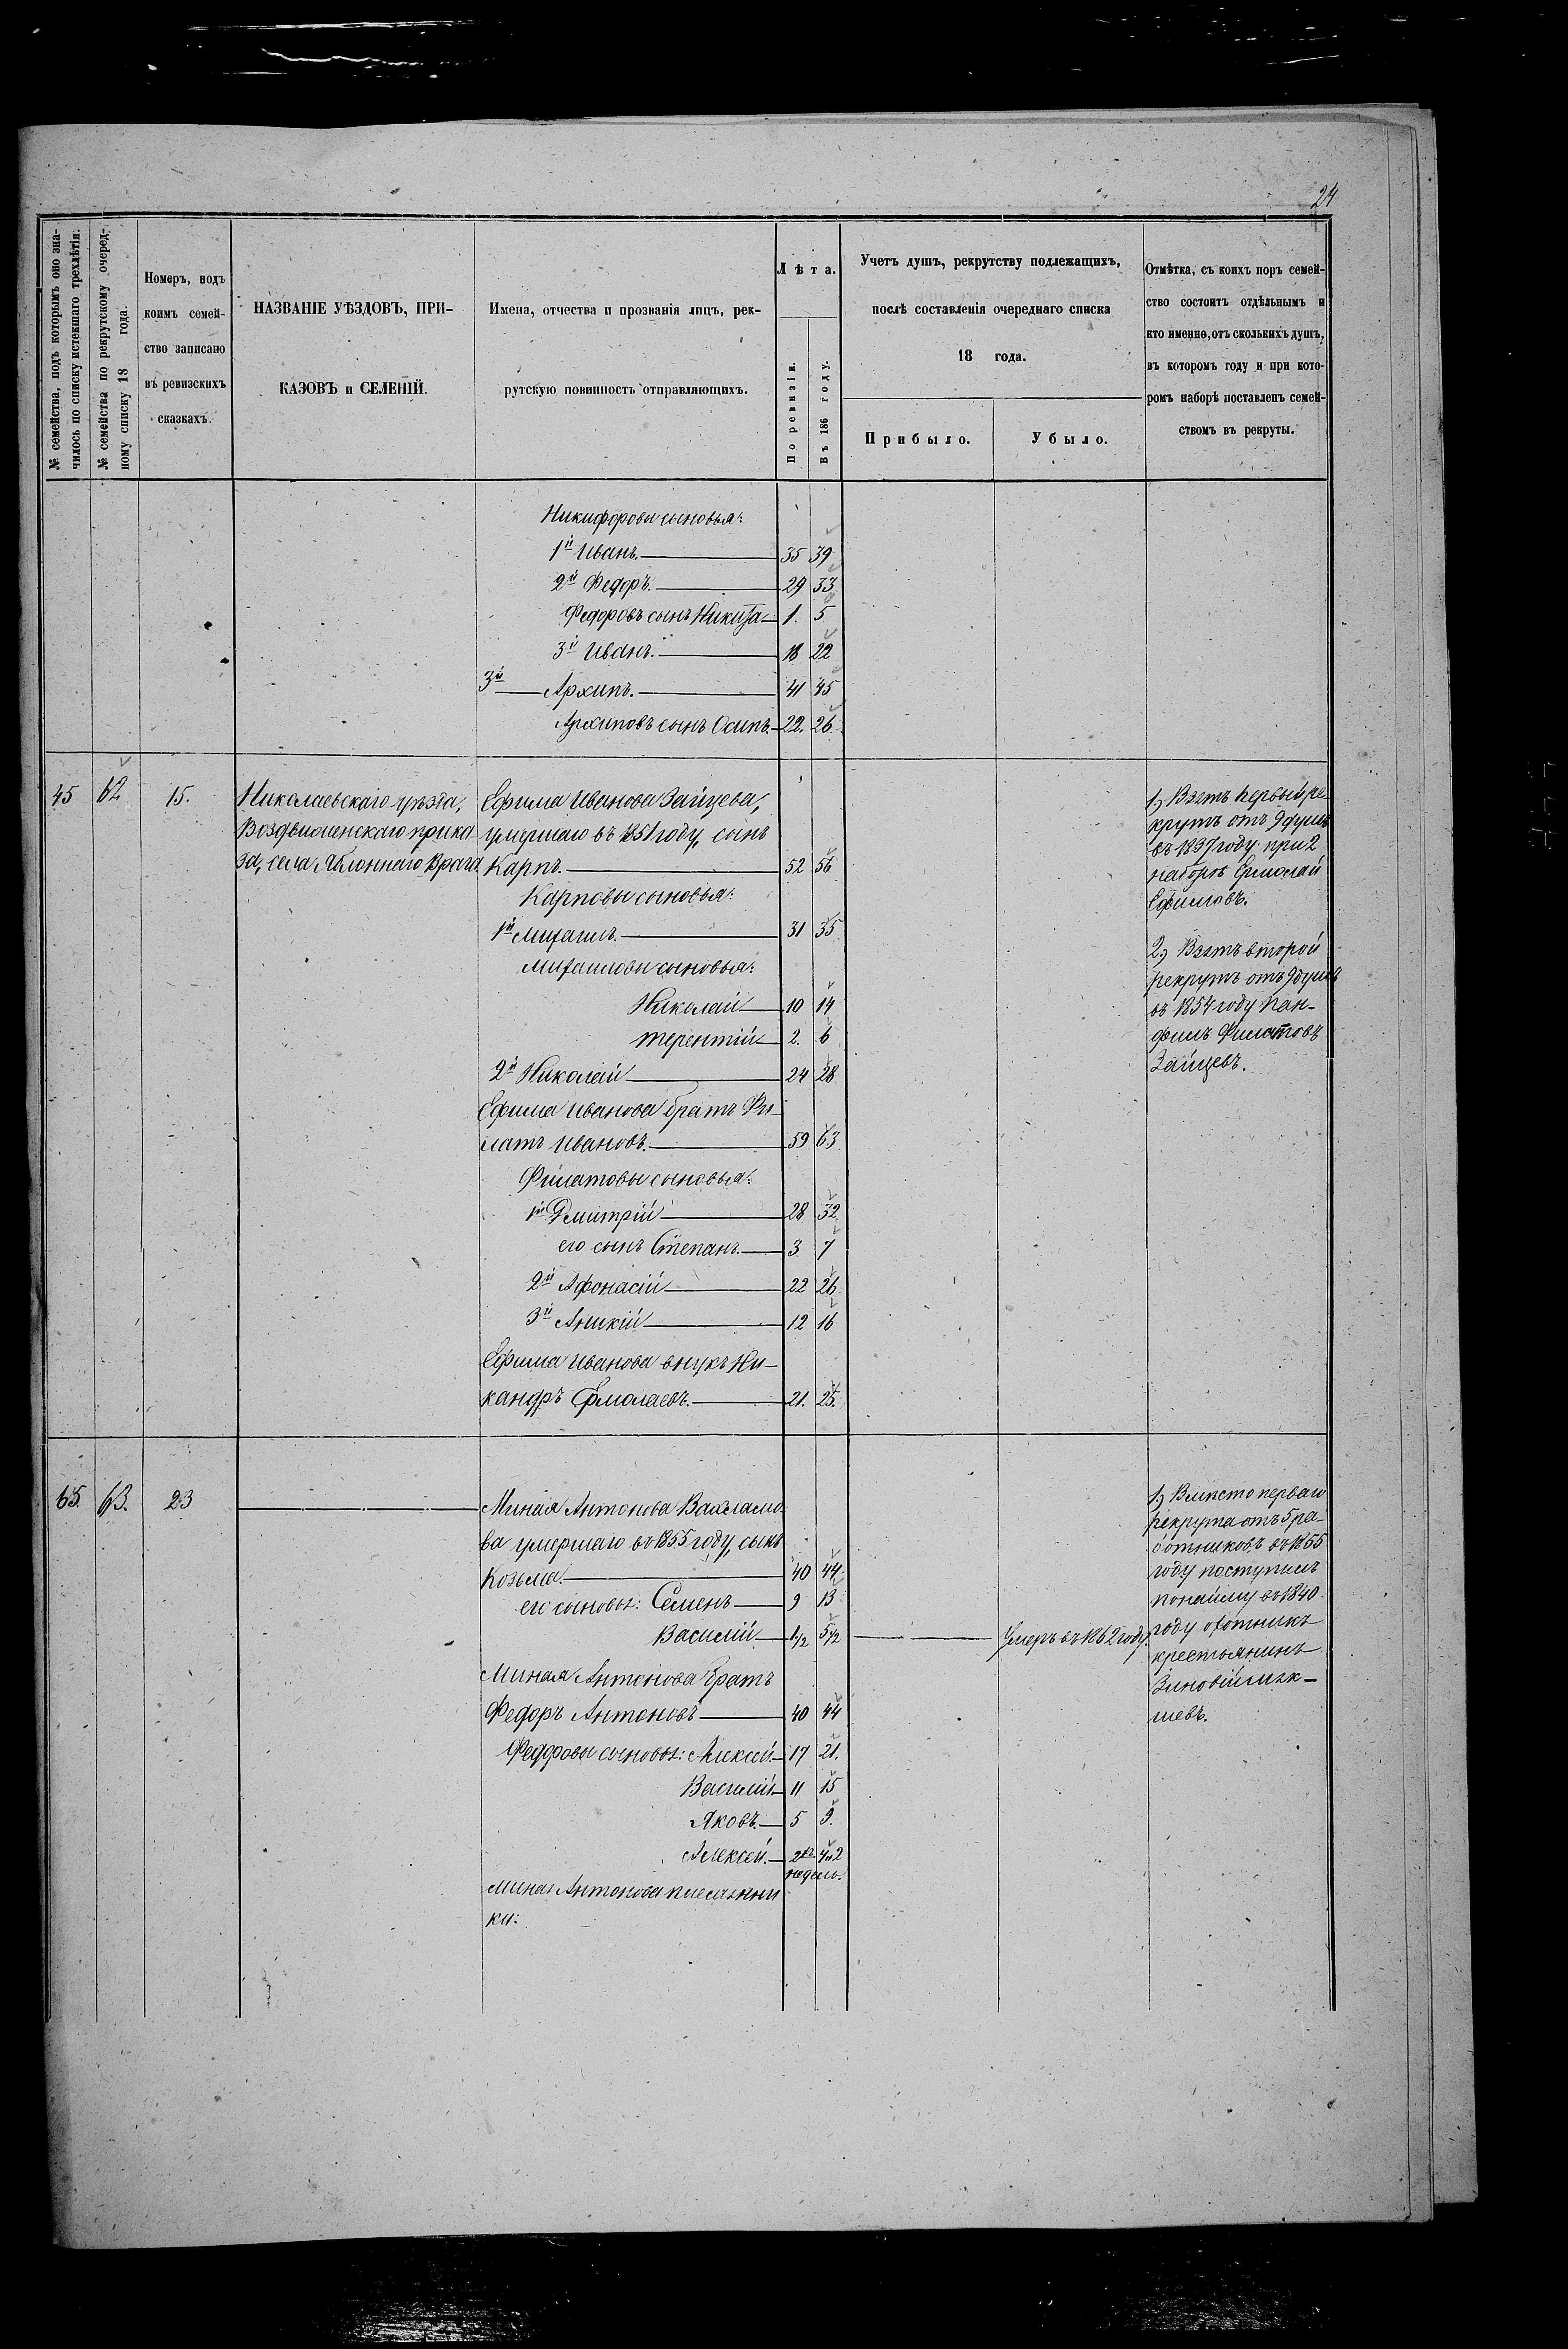 24
№ семейства, подъ которымъ оно зна-
чилось по списку истекшаго трехлѣтія.
№ семейства по рекрутскому очеред-
ному списку 18 года.
Номеръ, подъ
коимъ семей-
ство записано
въ ревизскихъ
сказкахъ.
НАЗВАНІЕ УѢЗДОВЪ, ПРИ-
КАЗОВЪ и СЕЛЕНІЙ.
Имена, отчества и прозванія лицъ, рек-
рутскую повинность отправляющихъ.
Лѣта.
По ревизіи.
Въ 186 году.
Учетъ душъ, рекрутству подлежащихъ,
послѣ составленія очереднаго списка
18 года.
Прибыло.
Убыло.
Отмѣтка, съ коихъ поръ семей-
ство состоитъ отдѣльнымъ и
кто именно, отъ сколькихъ душъ,
въ которомъ году и при кото-
ромъ наборѣ поставленъ семей-
ствомъ въ рекруты.
Никифоровы сыновья:
1й Иванъ. 35 39
2й Федоръ. 29 33
Федоровъ сынъ Никита 1. 5
3й Иванъ. 18 22
3й Архипъ. 41 45
Архиповъ сынъ Осипъ. 22. 26.
45 62 15. Николаевскаго уѣзда,
Воздвиженскаго прика
за, села Яблоннаго Врага.
Ефима Иванова Зайцева,
умершаго въ 1851 году, сынъ
Карпъ. 52 56
Карповы сыновья:
1й Михаилъ. 31 35
Михаиловы сыновья:
Николай 10 14
Терентій 2. 6
2й Николай 24 28
Ефима Иванова братъ Фи-
латъ Ивановъ. 59 63
Филатовы сыновья:
1й Дмитрій 28 32
его сынъ Степанъ. 3 7
2й Афонасій 22 26
3й Аникій 12 16
Ефима Иванова внукъ Ни-
кандръ Ермолаевъ. 21. 25.
1.) Взятъ первый ре-
крутъ отъ 9 душъ
въ 1837 году при 2
наборѣ Ермолай
Ефимовъ.
2.) Взятъ второй
рекрутъ отъ 9 душъ
въ 1854 году Пан-
филъ Филатовъ
Зайцевъ.
65. 63. 23
Миная Антонова Вахламо-
ва умершаго въ 1855 году, сынъ
Козьма. 40 44.
его сыновья: Семенъ 9 13
Василій 1½ 5½ Умеръ въ 1862 году.
Миная Антонова братъ
Федоръ Антоновъ 40 44
Федоровы сыновья: Алексей. 17 21.
Василій 11 15
Яковъ. 5 9.
Алексей. 2хъ 4и2
недель.
Миная Антонова племянни
ки:
1.) Вместо перваго
рекрута отъ 5 ра-
ботниковъ въ 1855
году поступилъ
по найму въ 1840
году охотникъ
крестьянинъ
Зиновій